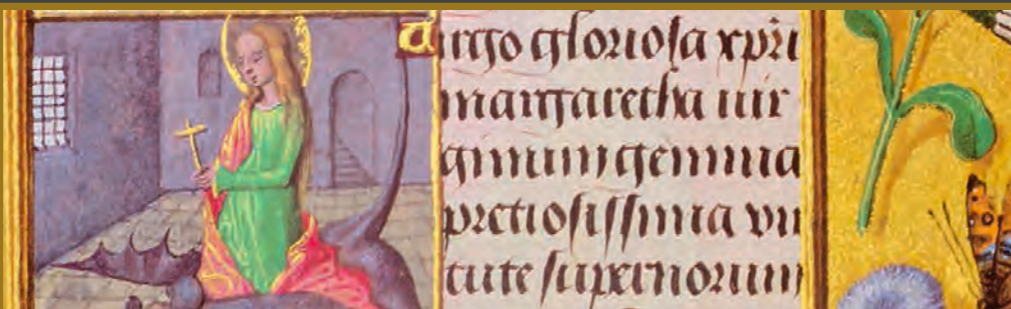 Uirgo gloriosa xp̃i
margaretha uir
ginum gemma
preciosissima vir
tute supernorum